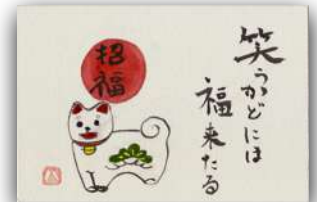 笑うかどには
福来たる
招福